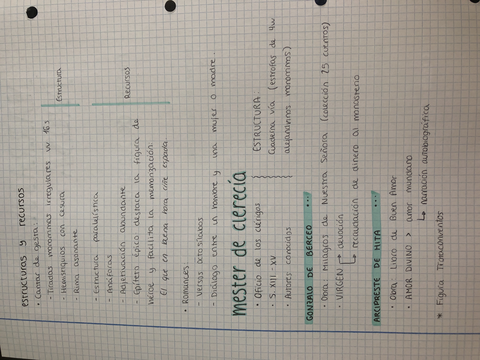 estructuras y recursos
• Cantar de gesta:
- Tiradas monorrimas irregulares vv 16s
- Hemistiquios con cesura
- Rima asonante
Estructura
- estructura paralelística
- Anáforas
- Adjetivación abundante
- epíteto épico destaca la figura de
héroe y facilita la memorización
El que en buena hora ciñe espada
Recursos
• Romances
- Versos octosílabos
- Diálogo entre un hombre y una mujer o madre
mester de clerecía
• Oficio de los clérigos
• S. XIII - XV
• Autores conocidos
ESTRUCTURA
Cuaderna vía (estrofas de 4vv
alejandrinos monorrimos)
GONZALO DE BERCEO ...
• Obra: Milagros de Nuestra Señora (colección 25 cuentos)
• VIRGEN → devoción
→ recaudación de dinero al monasterio
ARCIPRESTE DE HITA ...
• Obra: Libro de Buen Amor
• AMOR DIVINO > amor mundano
↳ narración autobiográfica
* Figura Trotaconventos